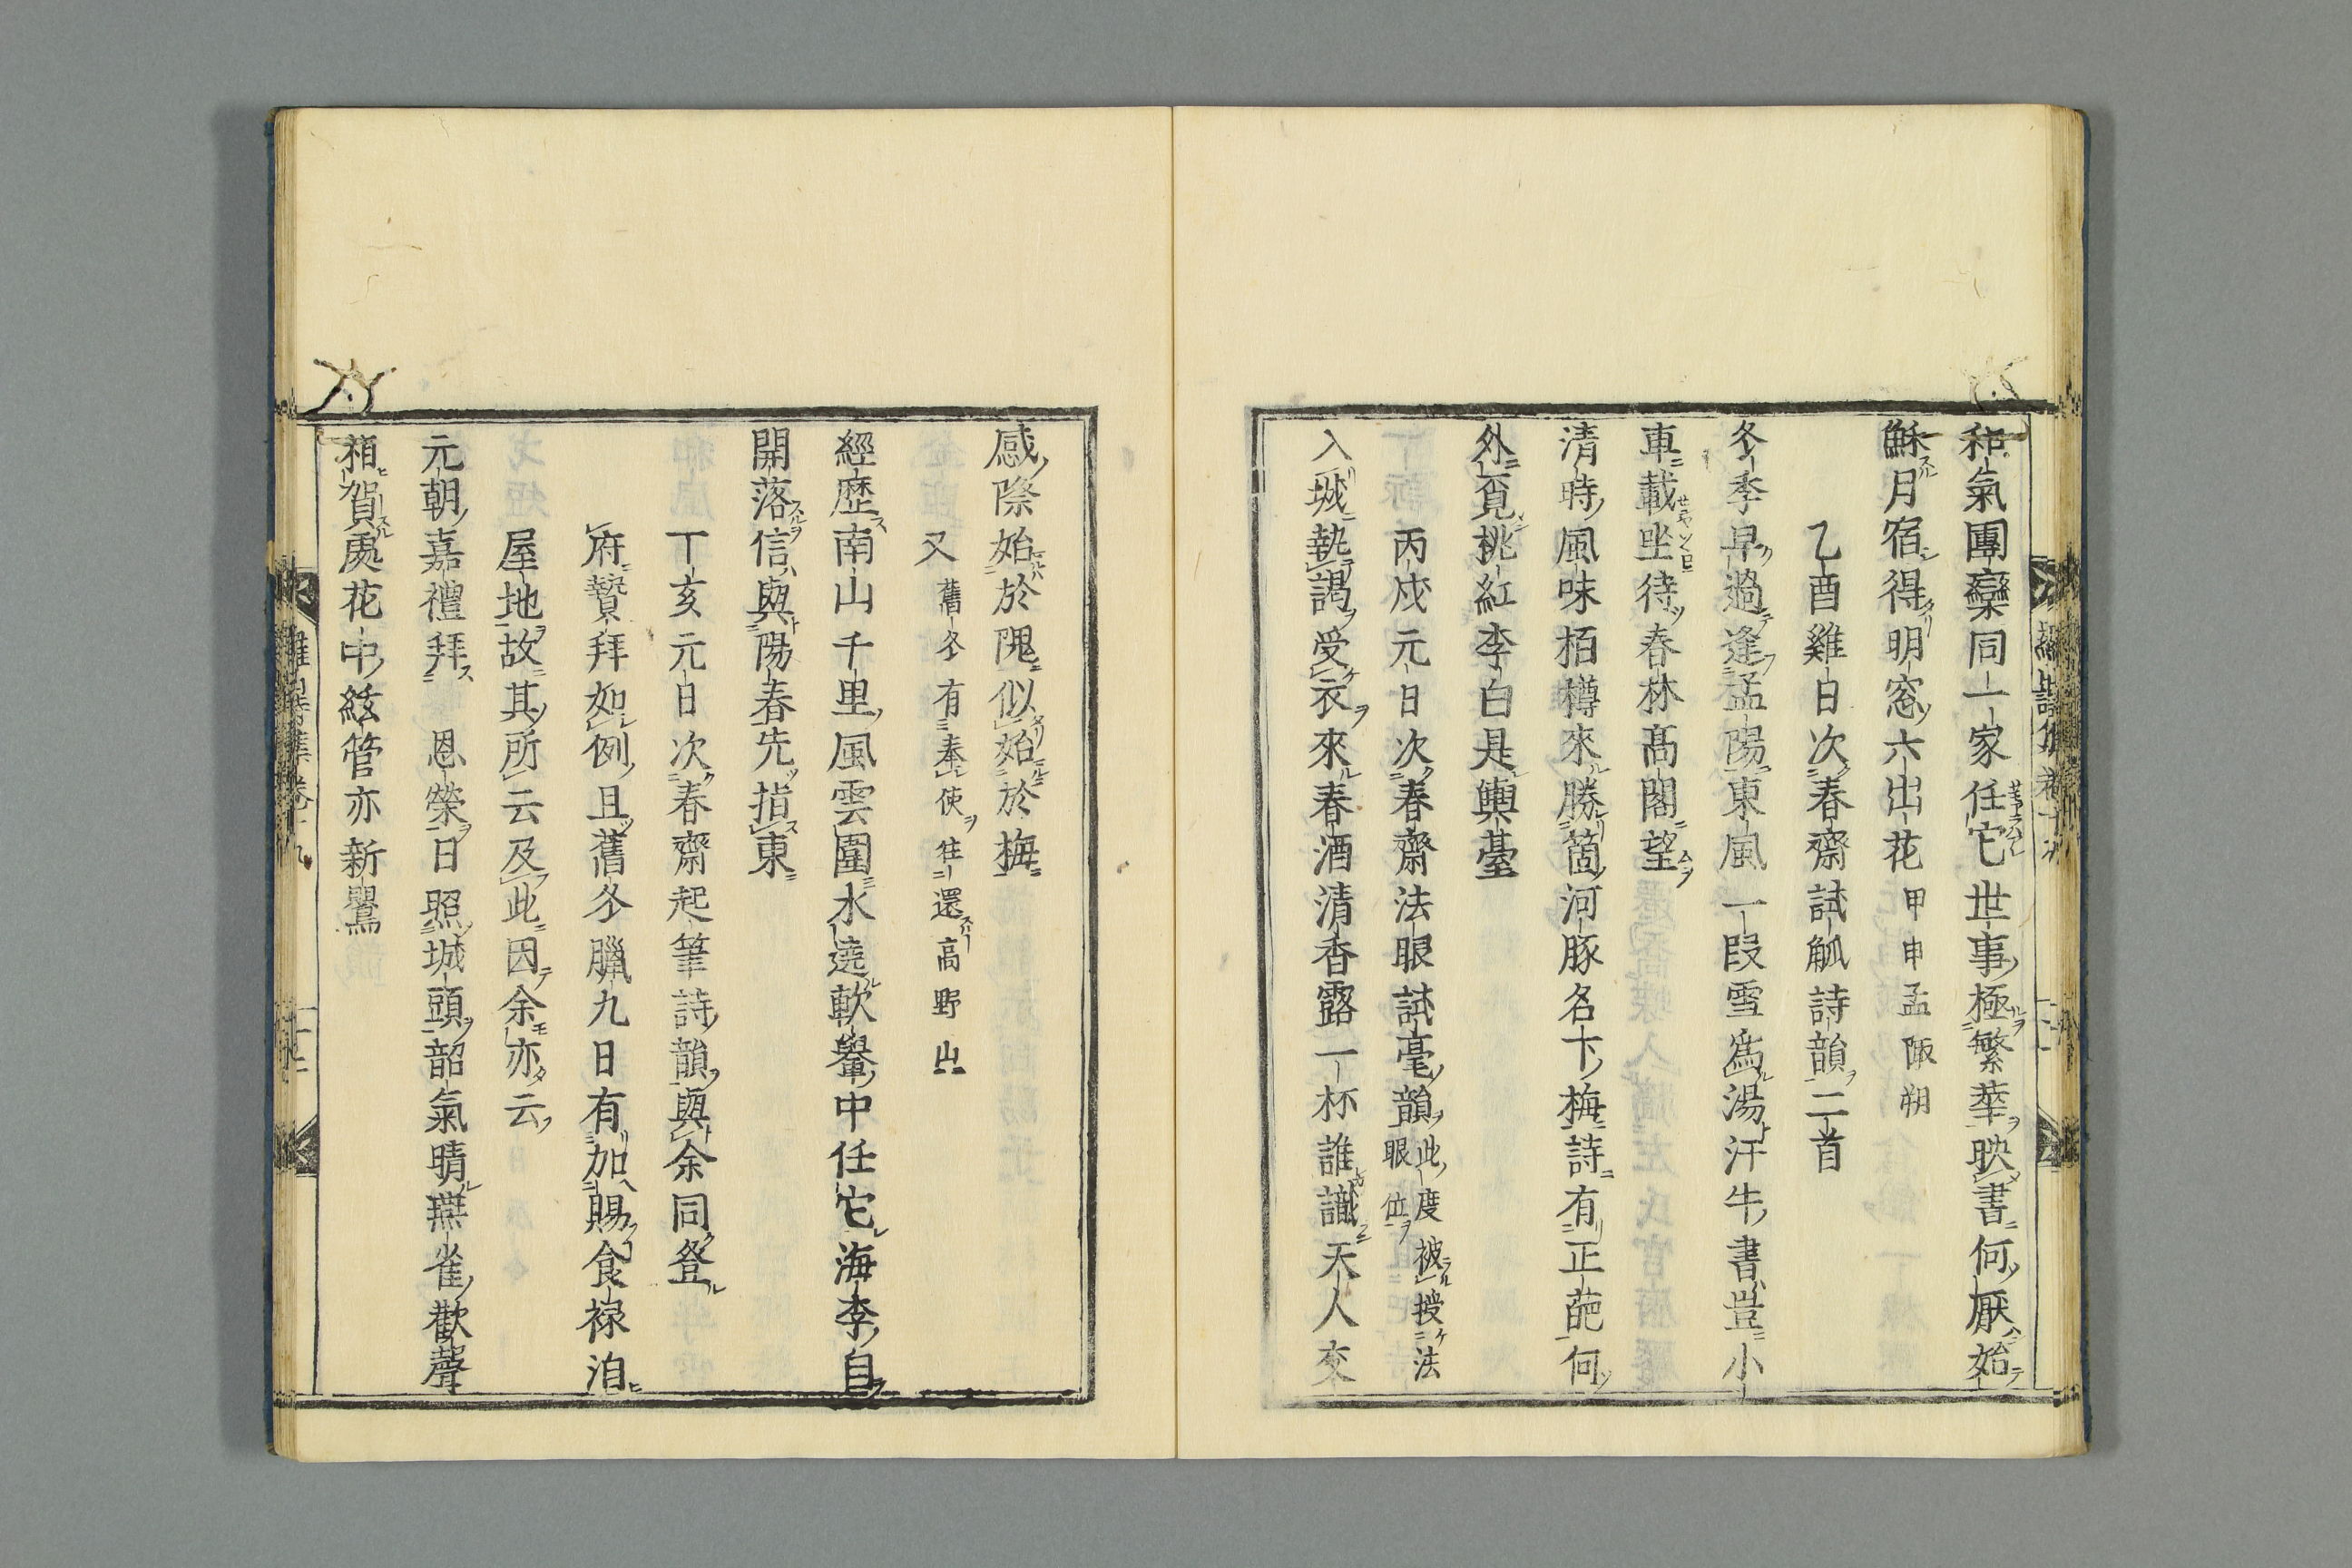 和氣團欒同一家任它世事極繁華映書何厭始
穌月宿得明窓六出花甲申孟陬朔
乙酉雞日次春齋試觚詩韻二首
冬季早過逢孟陽東風一段雪爲湯汗牛書豈小
車載坐待春林髙閣望
清時風味栢樽來勝箇河豚名卞梅詩有正葩何
外覓桃紅李白是輿臺
丙戌元日次春齋法眼試毫韻此度被授法
眼位
入城執謁受衣來春酒清香露一杯誰識天人交
感際始於隗似始於梅
又舊冬有奉使往還高野山
經歷南山千里風雲圍水遶軟轝中任它海李自
開落信與陽春先指東
丁亥元日次春齋起筆詩韻與余同登
府贄拜如例且舊冬臘九日有加賜食祿洎
屋地故其所云及此因余亦云
元朝嘉禮拜恩榮日照城頭韶氣晴燕雀歡聲
相賀處花中絃管亦新鸎